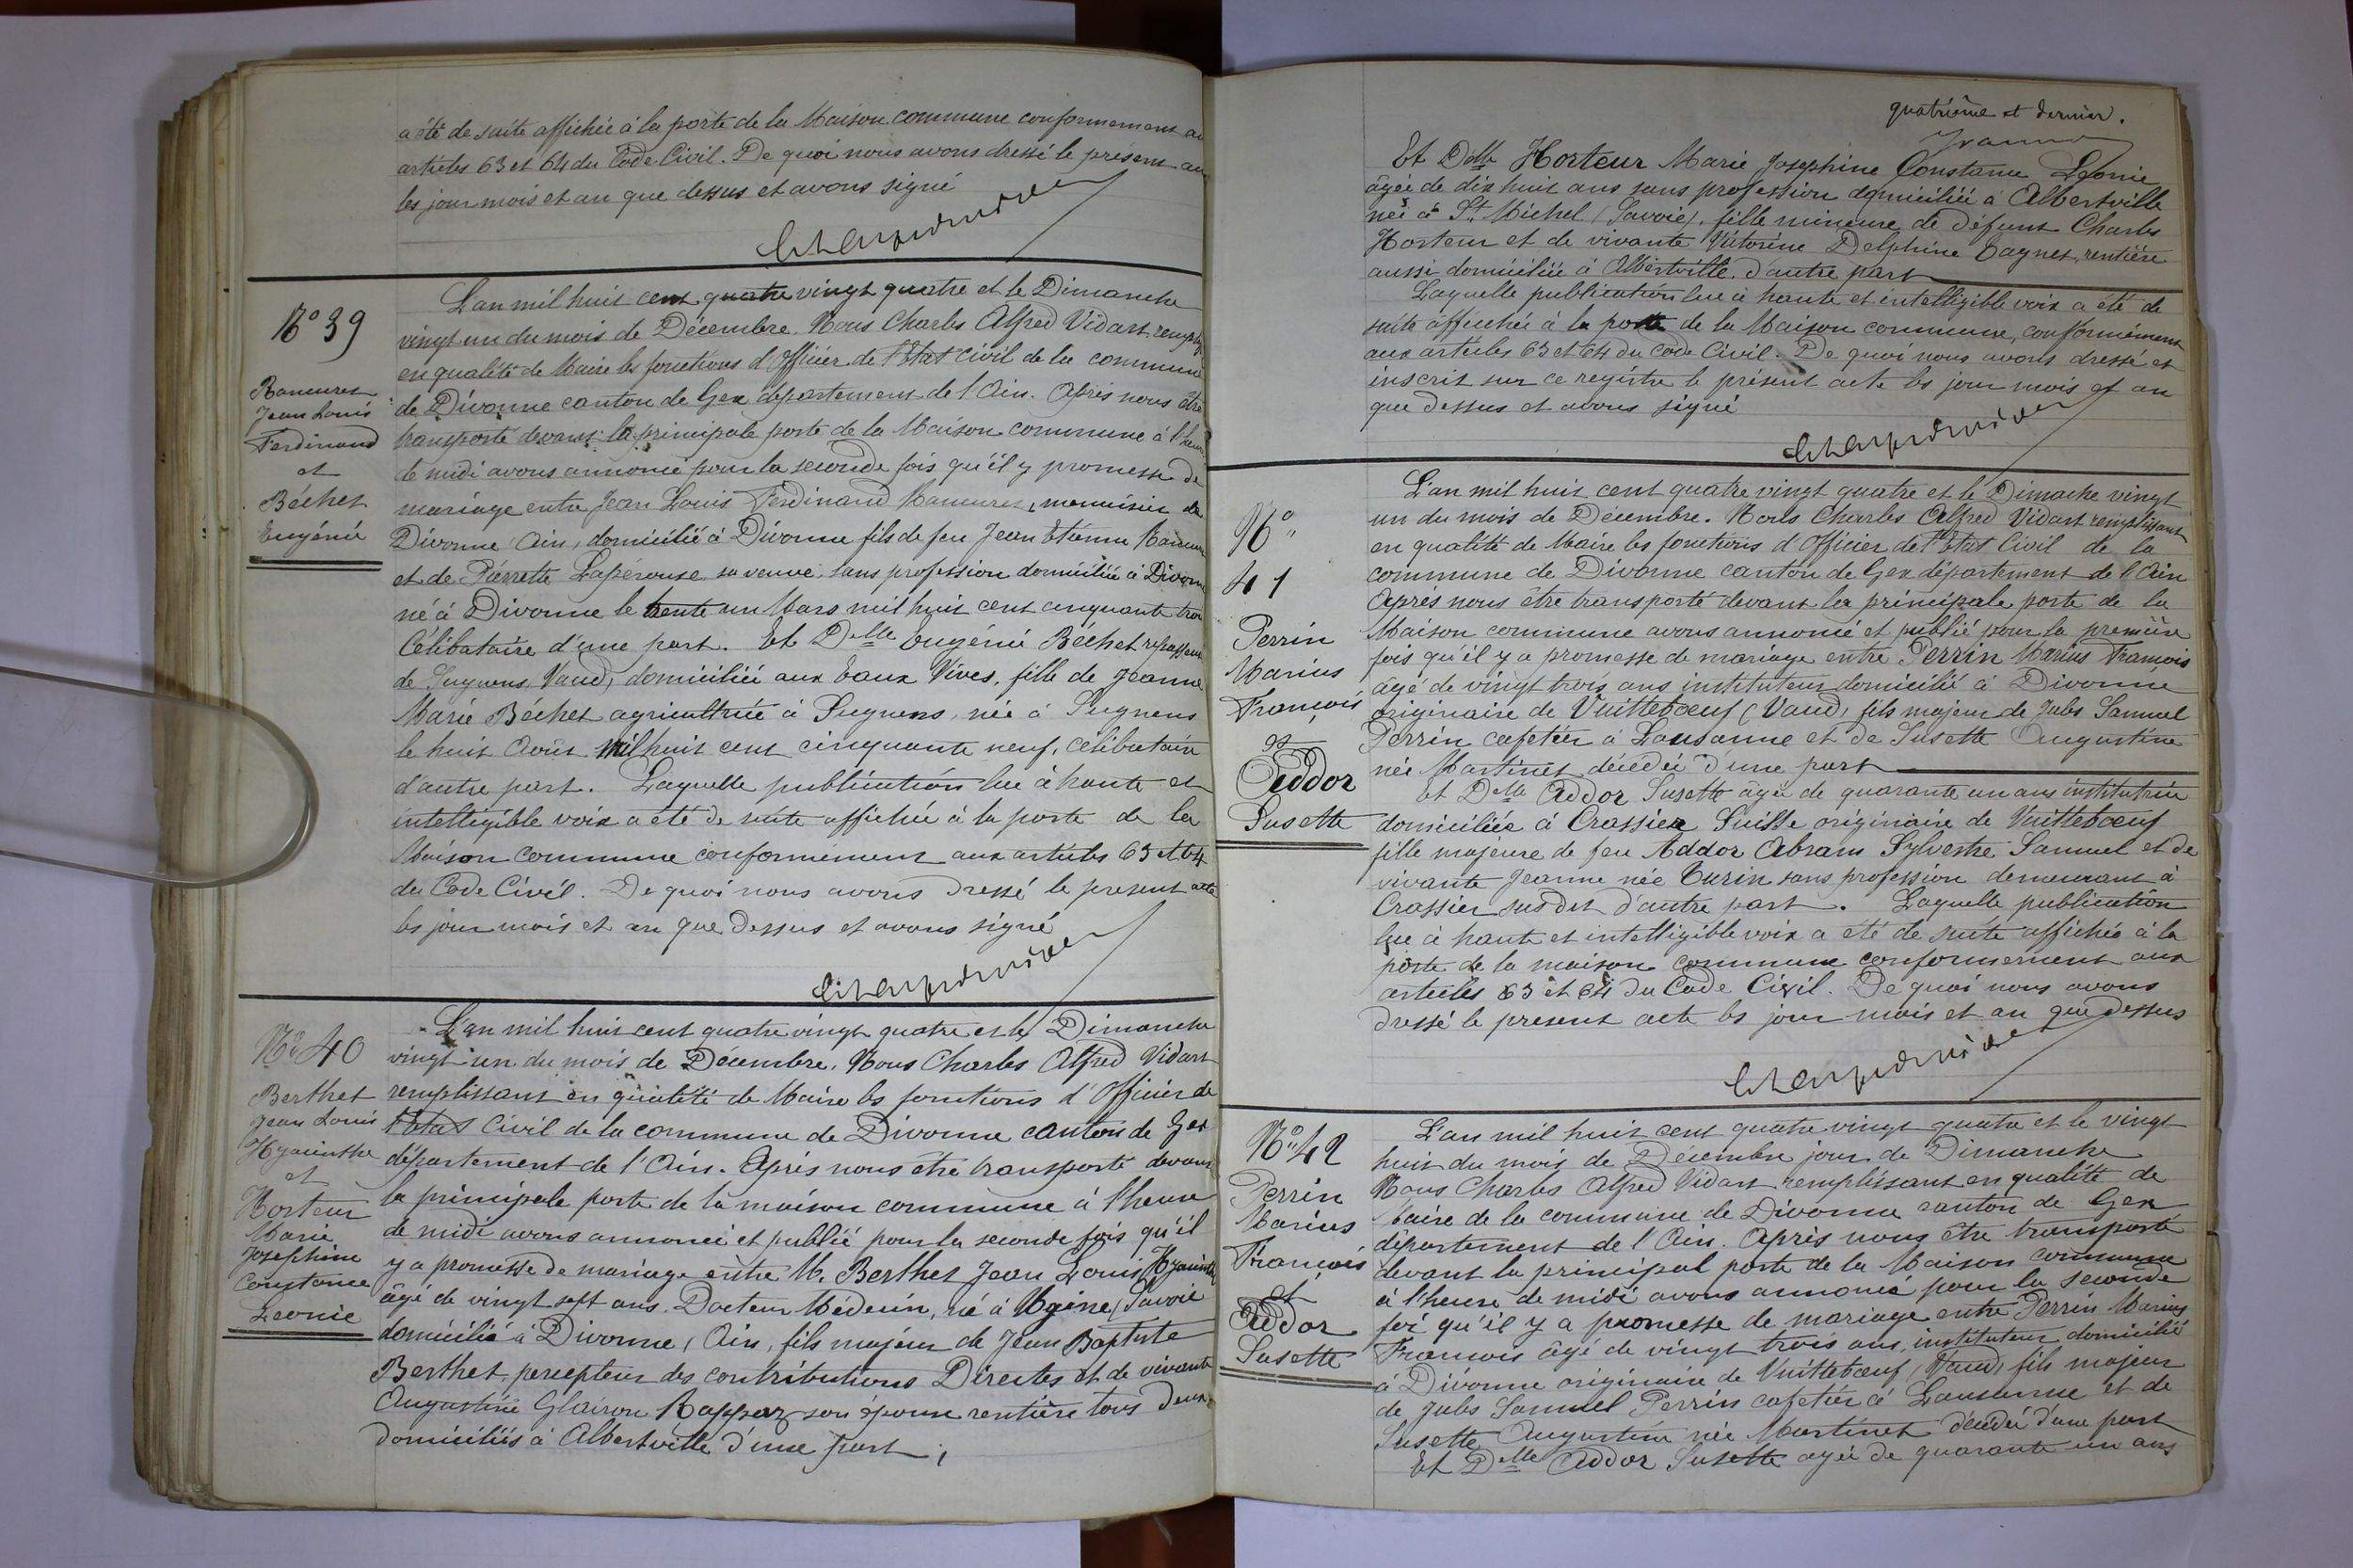 a été de suite affichée à la porte de la Maison commune conformement au
articles 63 et 64 du Code Civil. De quoi nous avons dressé le présent
les jour mois et an que dessus et avons signé
No 39
Jean Louis
Ferdinand
et
Béchet
Eugénie
L'an mil huit cent quatre vingt quatre et le Dimanche
vingt un du mois de Décembre. Nous Charles Alfred Vidart
en qualité de Maire les fonctions d'Officier de l'Etat civil de la commune
de Divonne canton de Gex département de l'Ain. Après nous être
transporté devant la principale porte de la Maison commune à l'heure
de midi avons annoncé pour la seconde fois qu'il y promesse de
mariage entre Jean Louis Ferdinand menuisier de
Divonne Ain, domicilié à Divonne fils de feu Jean Etienne
et de Pierrette Lapérouse sa veuve, sans profession domiciliée à Divonne
né à Divonne le trente un Mars mil huit cent cinquante trois
Célibataire d'une part. Et Delle Eugénie Béchet repasseuse
de Sugnens, Vaud, domiciliée aux Eaux Vives, fille de Jeanne
Marie Béchet agricultrice à Sugnens, née à Sugnens
le huit Août mil huit cent cinquante neuf, célibataire
d'autre part. Laquelle publication lue à haute et
intelligible voix a été de suite affichée à la porte de la
Maison commune conformément aux articles 63 et 64
du Code Civil. De quoi nous avons dressé le present acte
les jour mois et an que dessus et avons signé
No 40
Berthet
Jean Louis
Hyacinthe
et
Horteur
Marie
Josephine
Constance
Leonie
L'an mil huit cent quatre vingt quatre et le Dimanche
vingt un du mois de Décembre. Nous Charles Alfred Vidart
remplissant en qualité de Maire les fonctions d'Officier de
l'Etat Civil de la commune de Divonne canton de Gex
département de l'Ain. Après nous être transporté devant
la principale porte de la maison commune à l'heure
de midi avons annoncé et publié pour la seconde fois qu'il
y a promesse de mariage entre M. Berthet Jean Louis Hyacinthe
âgé de vingt sept ans Docteur Médecin, né à Ugine (Savoie
domicilié à Divonne, Ain, fils majeur de Jean Baptiste
Berthet, percepteur des contributions Directes et de vivante
Augustine Glairon Rappaz son épouse rentière tous deux
domiciliés à Albertville d'une part,
quatrième et dernier.
Et Delle Horteur Marie Josephine Constance Léonie
âgée de dix huit ans sans profession domiciliée à Albertville
née à St Michel (Savoie), fille mineure de défunt Charles
Horteur et de vivante Delphine rentière
aussi domiciliée à Albertville d'autre part
Laquelle publication lue à haute et intelligible voix a été de
suite affichée à la porte de la Maison commune, conformément
aux articles 63 et 64 du Code Civil. De quoi nous avons dressé et
inscrit sur ce registre le présent acte les jour mois et an
que dessus et avons signé
No
41
Perrin
Marius
François
et
Addor
Susette
L'an mil huit cent quatre vingt quatre et le Dimache vingt
un du mois de Décembre. Nous Charles Alfred Vidart remplissant
en qualité de Maire les fonctions d'Officier de l'Etat Civil de la
commune de Divonne canton de Gex département de l'Ain
Après nous être transporté devant la principale porte de la
Maison commune avons annoncé et publié pour la première
fois qu'il y a promesse de mariage entre Perrin Marius François
âgé de vingt trois ans instituteur domicilié à Divonne
originaire de Vuittebœuf (Vaud) fils majeur de Jules Samuel
Perrin cafetier à Lausanne et de Susette Augustine
née Martinet décédée d'une part
Et Delle Addor Susette âgée de quarante un ans institutrice
domiciliée à Crassier Suisse originaire de Vuittebœuf
fille majeure de feu Addor Abram Sylvestre Samuel et de
vivante Jeanne née Turin sans profession demeurant à
Crassier sus dit d'autre part. Laquelle publication
lue à haute et intelligible voix a été de suite affichée à la
porte de la maison commune conformement aux
articles 63 et 64 du Code Civil. De quoi nous avons
dressé le present acte les jour mois et an que dessus
No 42
Perrin
Marius
François
et
Addor
Susette
L'an mil huit cent quatre vingt quatre et le vingt
huit du mois de Décembre jour de Dimanche
Nous Charles Alfred Vidart remplissant en qualité de
Maire de la commune de Divonne canton de Gex
département de l'Ain. Après nous être transporté
devant la principal porte de la Maison commune
à l'heure de midi avons annoncé pour la seconde
foi qu'il y a promesse de mariage entre Perrin Marius
François âgé de vingt trois ans, instituteur domicilié
à Divonne originaire de Vuittebœuf (Vaud) fils majeur
de Jules Samuel Perrin cafetier à Lausanne et de
Susette Augustine née Martinet décédée d'une part
Et Delle Addor Susette agée de quarante un ans